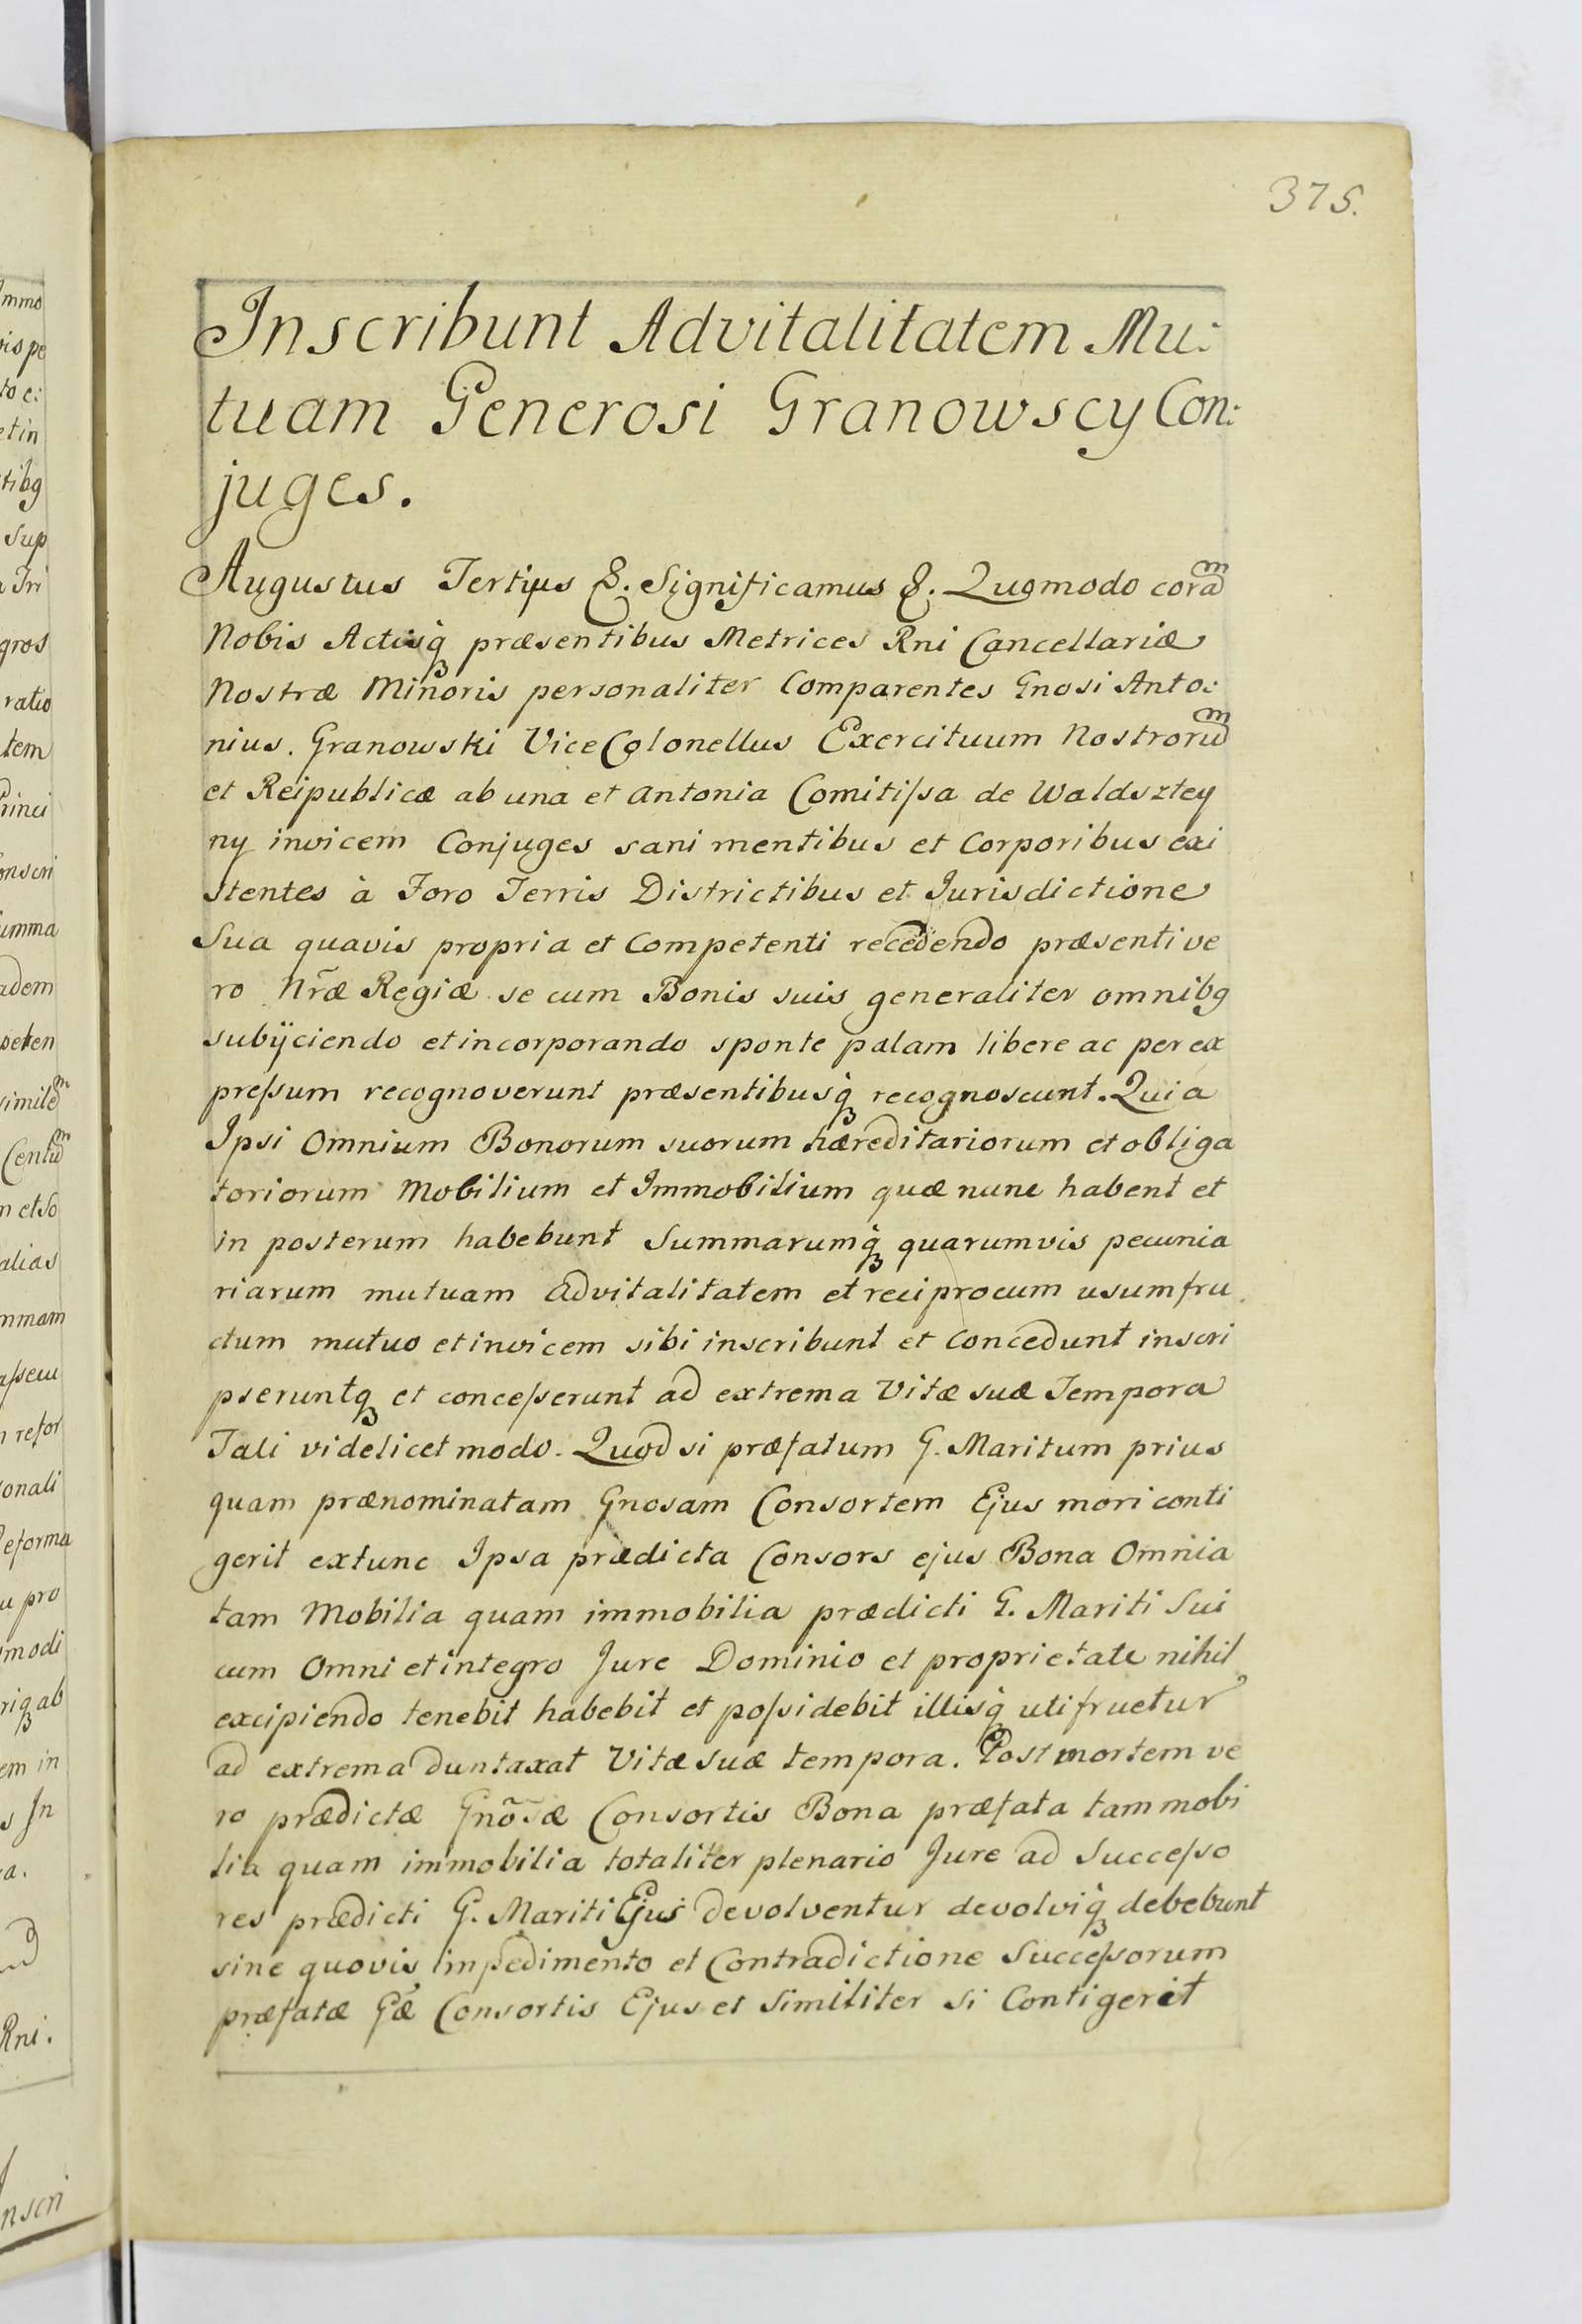 375.
Inscribunt Advitalitatem Mu:
tuam Generosi Granowscy Con:
juges.
Augustus Tertius &. Significamus &. Quomodo coram
Nobis Actisq́ præsentibus Metrices Rni Cancellariæ
Nostræ Minoris personaliter Comparentes Gnosi Anto:
nius. Granowski Vice Colonellus Exercituum Nostrorum
et Reipublicæ ab una et Antonia Comitiſsa de Waldsztey
ny invicem Conjuges sani mentibus et Corporibus exi
stentes à Foro Terris Districtibus et Jurisdictione
Sua quavis propria et Competenti recedendo præsenti ve
ro Nr̃æ Regiæ se cum Bonis suis generaliter omnibq
subÿciendo et incorporando sponte palam libere ac per ex
preſsum recognoverunt præsentibusq́ recognoscunt. Quia
Ipsi Omnium Bonorum suorum hæreditariorum et obliga
toriorum Mobilium et Immobilium quæ nunc habent et
in posterum habebunt Summarumq́ quarumvis pecunia
riarum mutuam Advitalitatem et reciprocum usumfru
ctum mutuo et invicem sibi inscribunt et Concedunt inscri
pseruntq et conceſserunt ad extrema Vitæ suæ Tempora
Tali videlicet modo. Quod si præfatum G. Maritum prius
quam prænominatam Gnosam Consortem Ejus mori conti
gerit extunc Ipsa prædicta Consors ejus Bona Omnia
tam Mobilia quam immobilia prædicti G. Mariti Sui
cum Omni et integro Jure Dominio et proprietate nihil
excipiendo tenebit habebit et poſsidebit illisq́ utifruetur
ad extrema duntaxat Vitæ suæ tempora. Post mortem ve
ro prædictæ Gnõsæ Consortis Bona præfata tam mobi
lia quam immobilia totaliter plenario Jure ad Succeſso
res prædicti G. Mariti Ejus devolventur devolviq́ debebunt
sine quovis impedimento et Contradictione Succeſsorum
præfatæ Gæ Consortis Ejus et Similiter si Contigerit